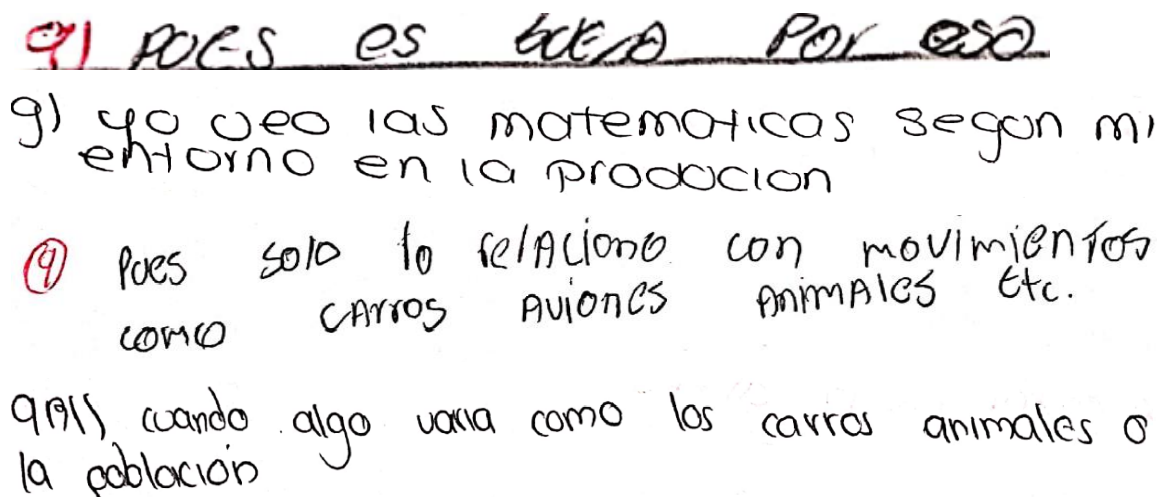 9) poes es buena Por eso
9) yo veo las matematicas segun mi
entorno en la producion
9) Pues solo lo relaciono con movimientos
como carros aviones animales Etc.
cuando algo varia como los carros animales o
la población